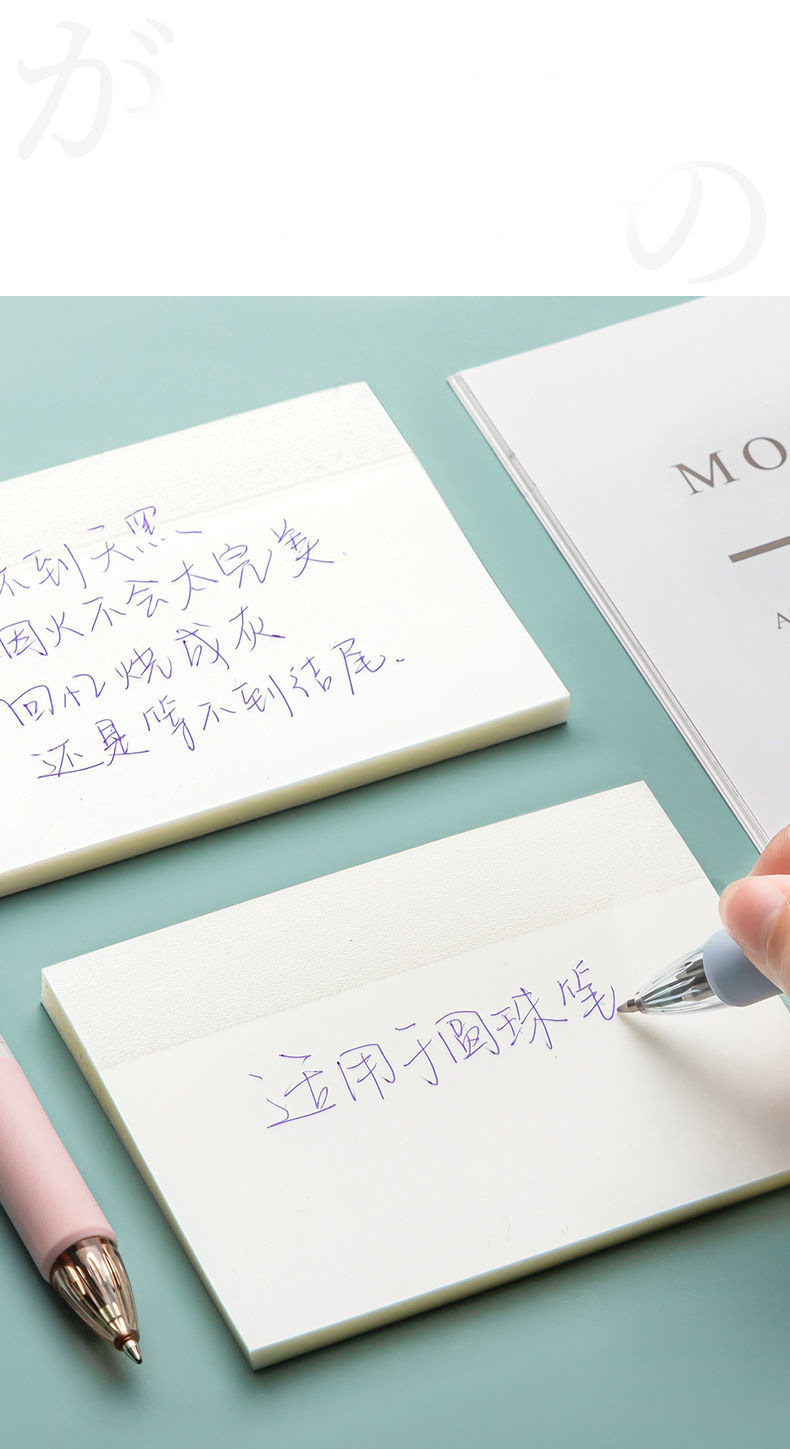 が
の
不到天黑
烟火不会太完美
回忆烧成灰
还是等不到结尾.
适用于圆珠笔
MO
A